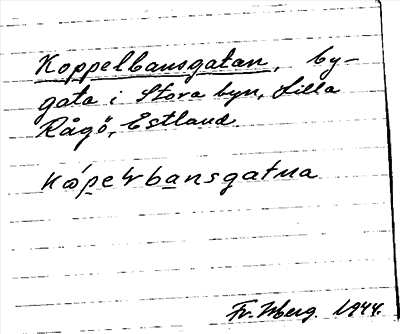 Koppelbansgatan, by-
gata i Stora byn, Lilla
Rågö, Estland.
kǿpeⱡbansgatna
Fr. Wberg. 1944.